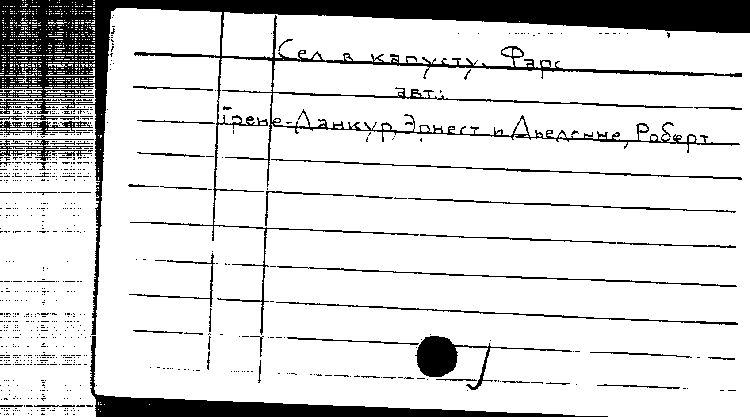 Сел в капусту. Фарс
авт:
Грене-Данкур, Эрнест и Дьедонне, Роберт